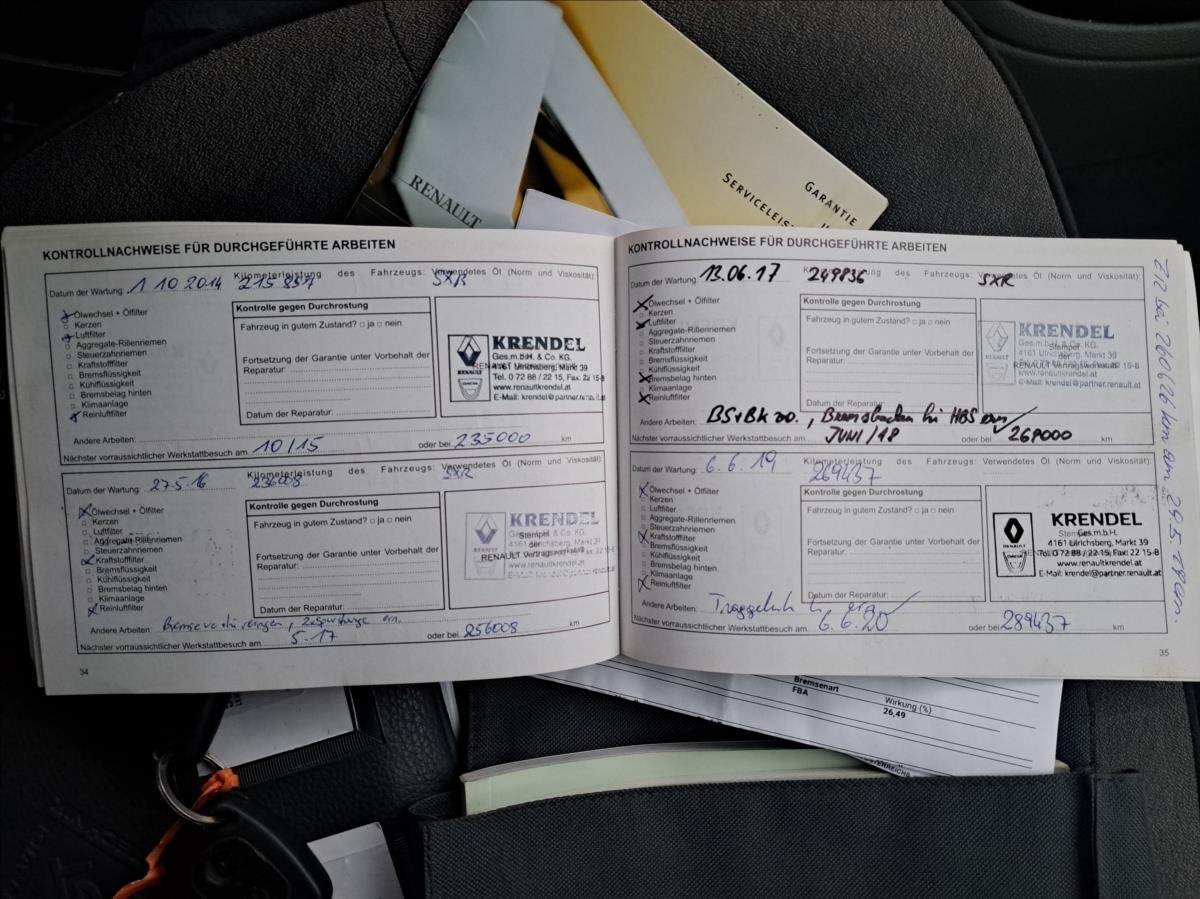 GARANTIE
SERVICELEIS
RENAULT
KONTROLLNACHWEISE FÜR DURCHGEFÜHRTE ARBEITEN
Datum der Wartung: 1 10 2014 Kilometerleistung des Fahrzeugs: 215 857 Verwendetes Öl (Norm und Viskosität) SXR
Ölwechsel + Ölfilter
Kerzen
Luftfilter
Aggregate-Rillenriemen
Steuerzahnriemen
Kraftstofffilter
Bremsflüssigkeit
Kühlflüssigkeit
Bremsbelag hinten
Klimaanlage
Reinluftfilter
Kontrolle gegen Durchrostung
Fahrzeug in gutem Zustand? □ ja □ nein
Fortsetzung der Garantie unter Vorbehalt der
Reparatur:
Datum der Reparatur:
KRENDEL
Ges.m.b.H. & Co. KG.
4161 Ulrichsberg, Markt 39
Tel. 0 72 88 / 22 15, Fax: 22 15-8
www.renaultkrendel.at
E-Mail: krendel@partner.renault.at
RENAULT
DACIA
Andere Arbeiten:
Nächster vorraussichtlicher Werkstattbesuch am 10/15 oder bei 235000 km
Datum der Wartung: 27.5.16 Kilometerleistung des Fahrzeugs: 236008 Verwendetes Öl (Norm und Viskosität) SXR
Ölwechsel + Ölfilter
Kerzen
Luftfilter
Aggregate-Rillenriemen
Steuerzahnriemen
Kraftstofffilter
Bremsflüssigkeit
Kühlflüssigkeit
Bremsbelag hinten
Klimaanlage
Reinluftfilter
Kontrolle gegen Durchrostung
Fahrzeug in gutem Zustand? □ ja □ nein
Fortsetzung der Garantie unter Vorbehalt der
Reparatur:
Datum der Reparatur:
KRENDEL
Ges.m.b.H. & Co. KG.
Stempel
4161 Ulrichsberg, Markt 39
der
RENAULT Vertragswerkstatt
www.renaultkrendel.at
E-Mail: krendel@partner.renault.at
Andere Arbeiten:
Nächster vorraussichtlicher Werkstattbesuch am 5.17 oder bei 256008 km
34
KONTROLLNACHWEISE FÜR DURCHGEFÜHRTE ARBEITEN
Datum der Wartung: 13.06.17 Kilometerleistung des Fahrzeugs: 249836 Verwendetes Öl (Norm und Viskosität) SXR
Ölwechsel + Ölfilter
Kerzen
Luftfilter
Aggregate-Rillenriemen
Steuerzahnriemen
Kraftstofffilter
Bremsflüssigkeit
Kühlflüssigkeit
Bremsbelag hinten
Klimaanlage
Reinluftfilter
Kontrolle gegen Durchrostung
Fahrzeug in gutem Zustand? □ ja □ nein
Fortsetzung der Garantie unter Vorbehalt der
Reparatur:
Datum der Reparatur:
KRENDEL
Ges.m.b.H. & Co. KG.
Stempel
4161 Ulrichsberg, Markt 39
RENAULT Vertragswerkstatt
www.renaultkrendel.at
E-Mail: krendel@partner.renault.at
Andere Arbeiten: BS+BK vo., Bremsbacken hi HBS
Nächster vorraussichtlicher Werkstattbesuch am JUNI/18 oder bei 269000 km
Datum der Wartung: 6.6.19 Kilometerleistung des Fahrzeugs: 269437 Verwendetes Öl (Norm und Viskosität)
Ölwechsel + Ölfilter
Kerzen
Luftfilter
Aggregate-Rillenriemen
Steuerzahnriemen
Kraftstofffilter
Bremsflüssigkeit
Kühlflüssigkeit
Bremsbelag hinten
Klimaanlage
Reinluftfilter
Kontrolle gegen Durchrostung
Fahrzeug in gutem Zustand? □ ja □ nein
Fortsetzung der Garantie unter Vorbehalt der
Reparatur:
Datum der Reparatur:
KRENDEL
Ges.m.b.H.
4161 Ulrichsberg, Markt 39
Tel. 0 72 88 / 22 15, Fax: 22 15-8
www.renaultkrendel.at
E-Mail: krendel@partner.renault.at
RENAULT
Andere Arbeiten: Traggelenk
Nächster vorraussichtlicher Werkstattbesuch am 6.6.20 oder bei 289437 km
35
bei 260626 km am 29.5.19
Bremsenart
FBA
Wirkung (%)
26,49